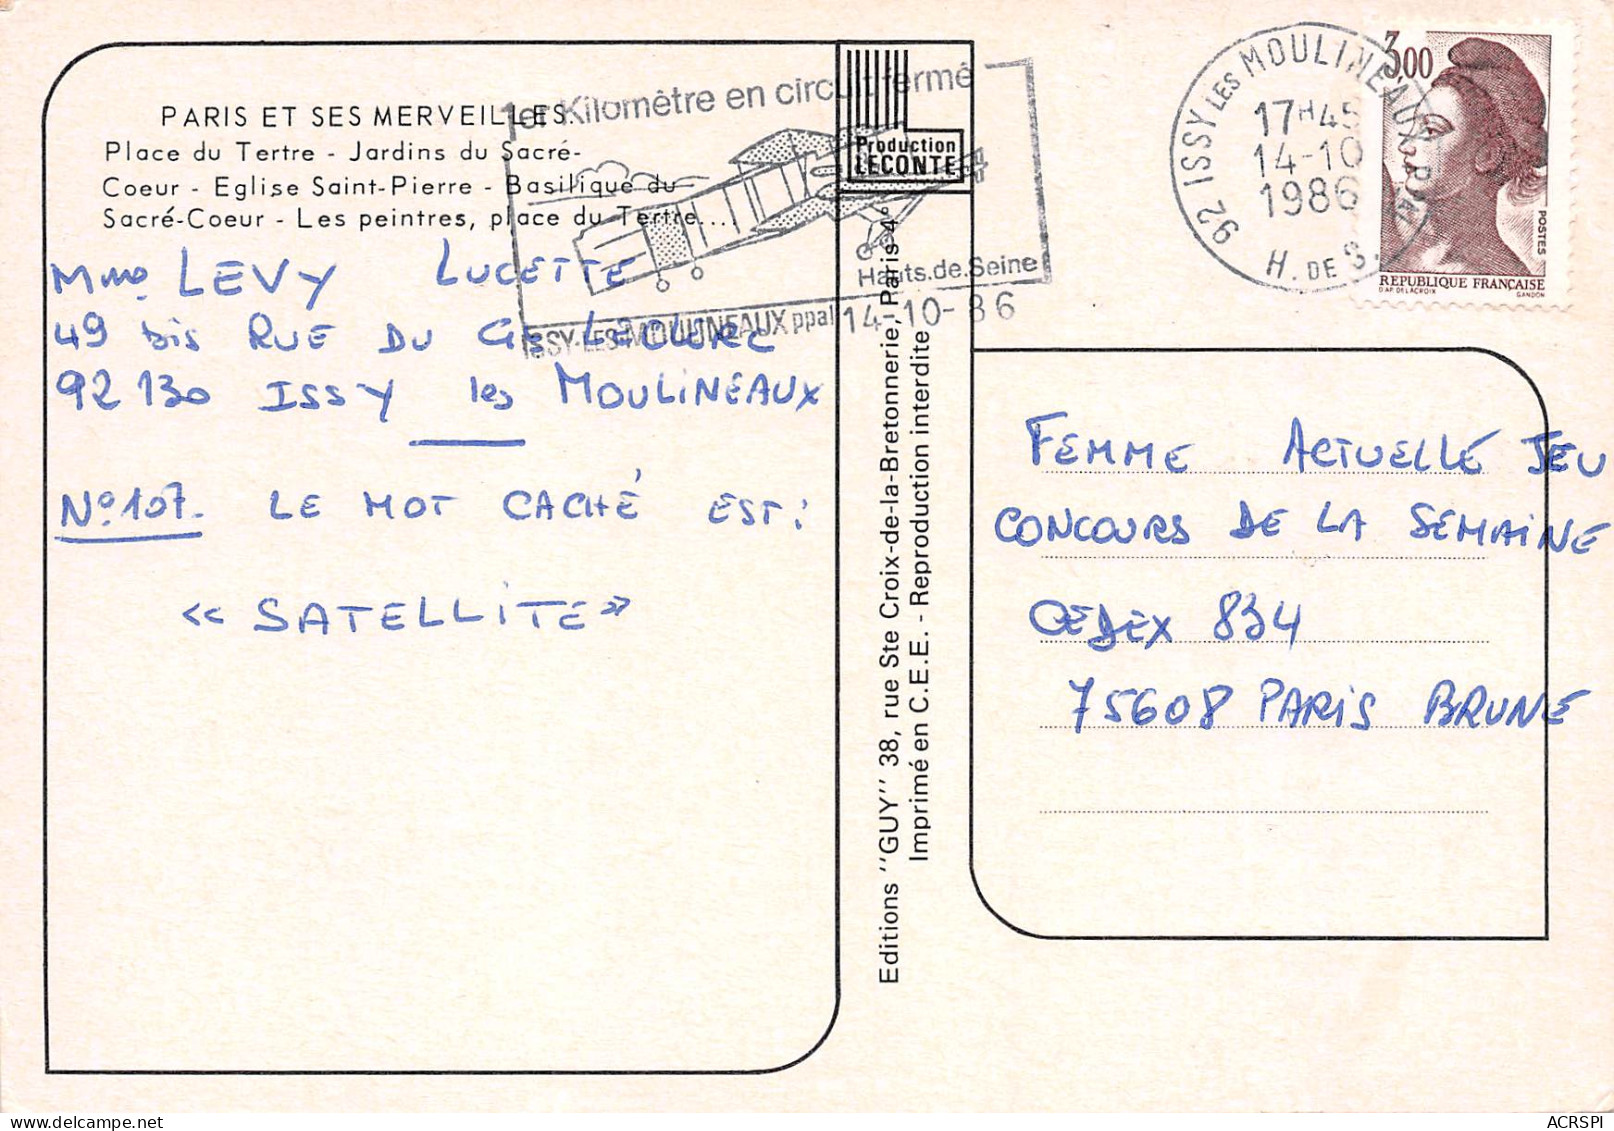 PARIS ET SES MERVEILLES
Place du Tertre - Jardins du Sacré-
Coeur - Eglise Saint-Pierre - Basilique du
Sacré-Coeur - Les peintres, place du Tertre...
1er Kilomètre en circuit fermé
Hauts.de.Seine
ISSY-LES-MOULINEAUX ppal 14-10-86
Production
LECONTE
92 ISSY LES MOULINEAUX PPAL
17H45
14-10
1986
H. DE S.
3,00
POSTES
REPUBLIQUE FRANÇAISE
D'AP. DELACROIX GANDON
Mme LEVY LUCETTE
49 bis RUE DU GL LECLERC
92130 ISSY les MOULINEAUX
No 107. LE MOT CACHÉ EST:
« SATELLITE »
Editions "GUY" 38, rue Ste Croix-de-la-Bretonnerie, Paris 4°
Imprimé en C.E.E. - Reproduction interdite
FEMME ACTUELLE JEU
CONCOURS DE LA SEMAINE
CEDEX 834
75608 PARIS BRUNE
delcampe.net
ACRSPI